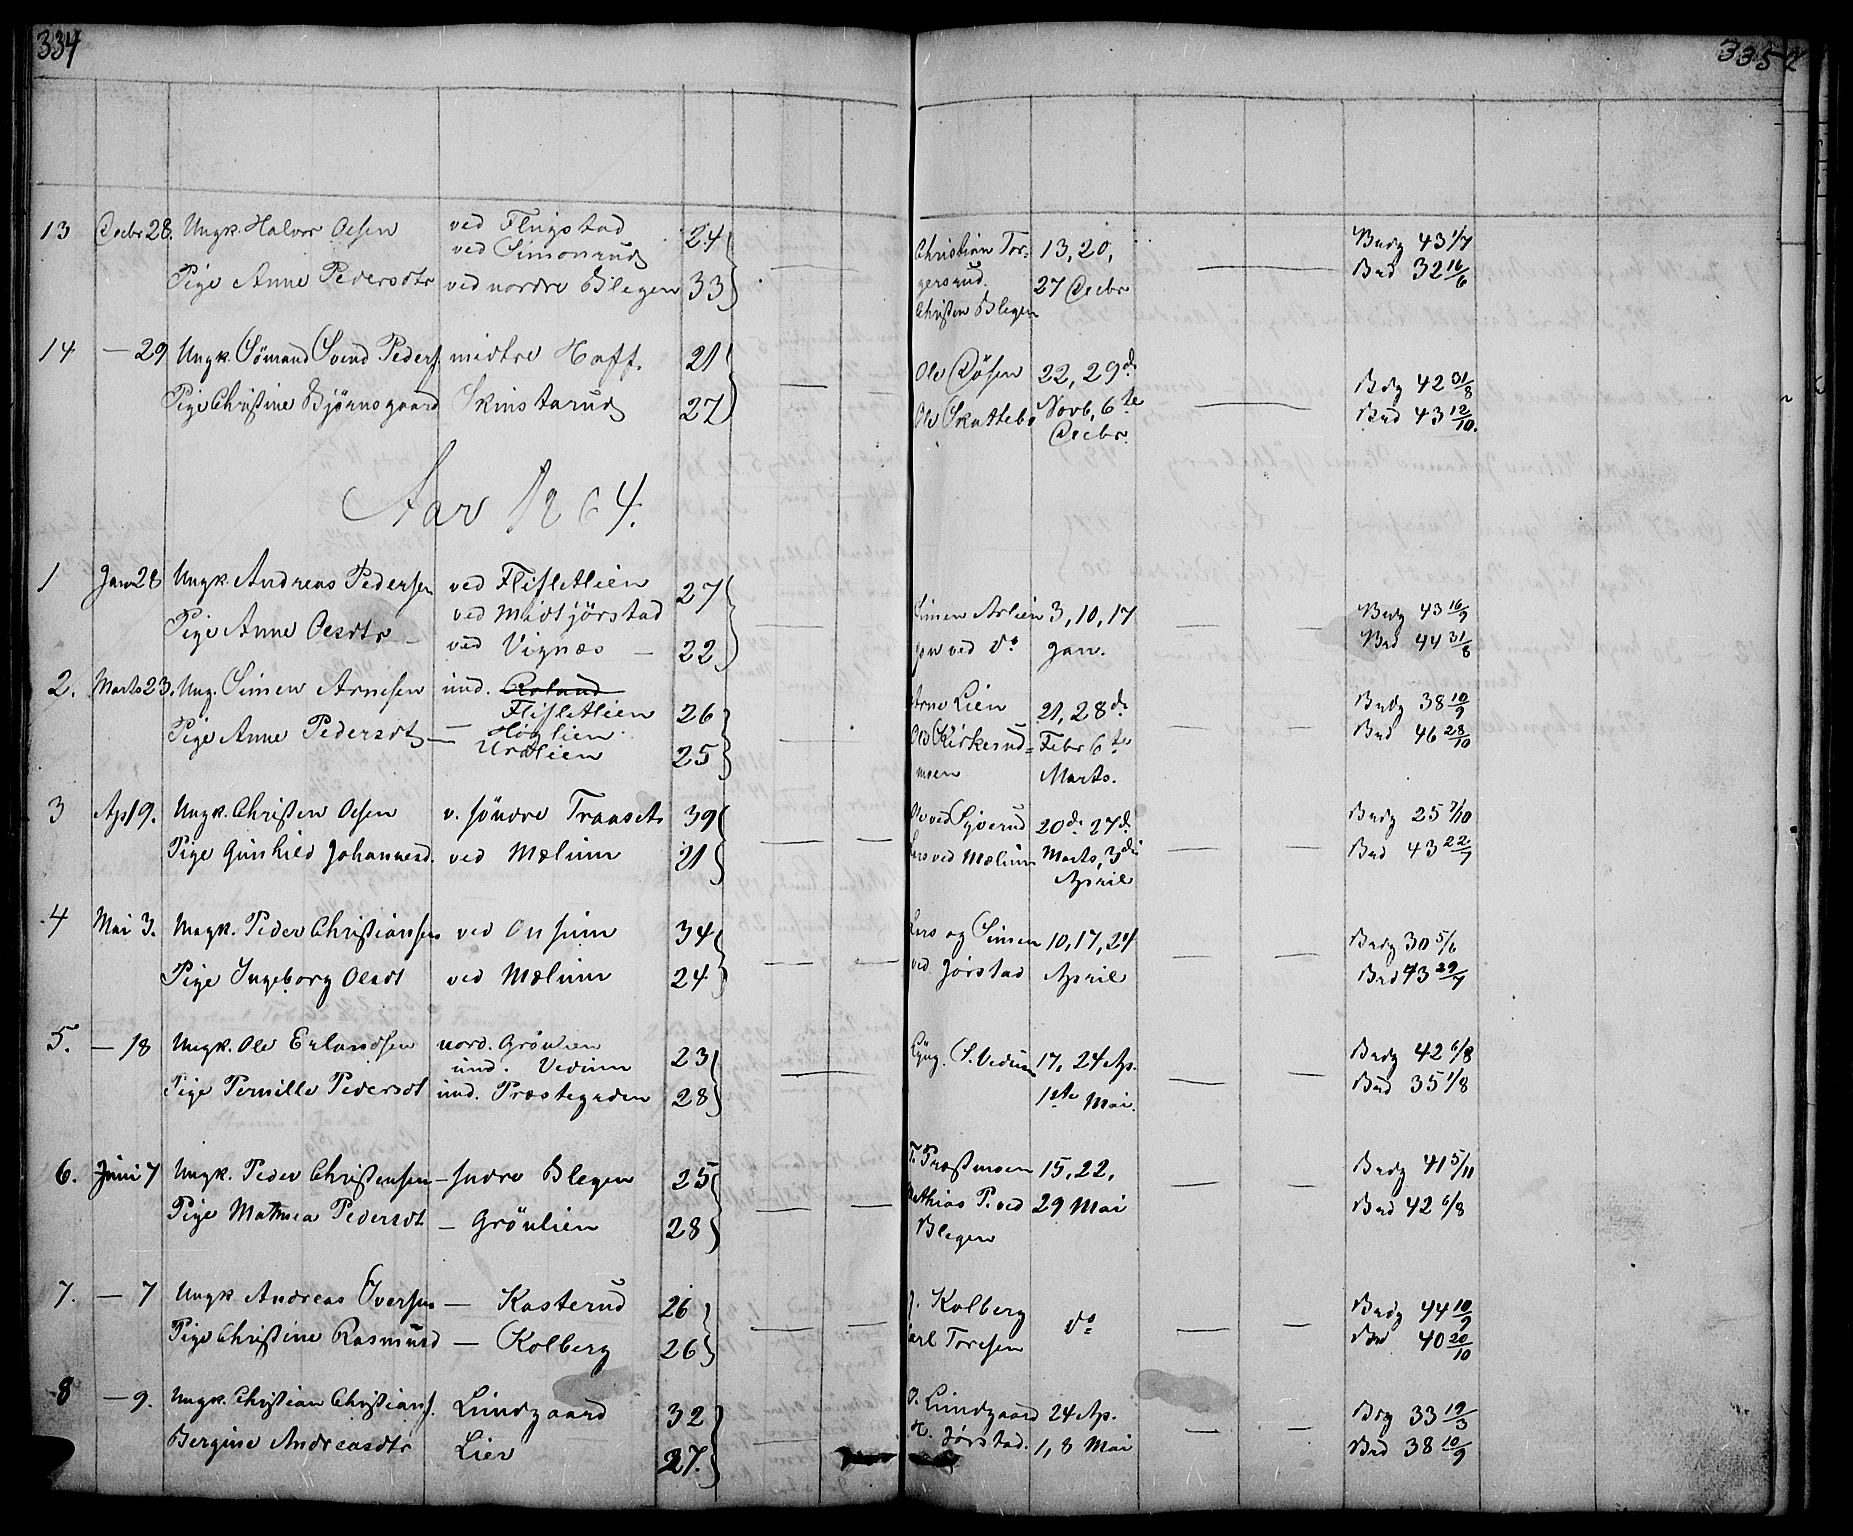 334
335
13 Decbr 28. Ungk. Halvor Olsen ved Flugstad 24
ved Simonrud
Pige Anne Pedersdtr ved nordre Blegen 33
Christian Tor-
gersrud.
Christen Blegen
13, 20,
27 Decbr
Brdg 43 1/7
Brd 32 16/6
14 — 29 Ungk. Sömand Svend Peders midtre Hoff. 21
Pige Christine Bjørnsgaard Skinstarud 27
Ole Dösen 22, 29d
Ole Skattebo Novb, 6te
Decbr.
Brdg 42 31/8
Brd 43 12/10.
Aar 1864.
1 Janr 28 Ungk. Andreas Pedersen ved Flisletlien 27
ved Midtjörstad
Pige Anne Olsdtr — ved Vignæs — 22
Simen Arlien 3, 10, 17
ved do Jan.
Brdg 43 16/9
Brd 44 31/8
2. Marts 23. Ung. Simen Arnesen und.
Flisletlien 26
Pige Anne Pedersdt — Höglien
— Urdlien 25
Arne Lien 21, 28de
Ole Kirkerud- Febr 6te
moen Marts.
Brdg 38 10/9
Brd 46 28/10
3 Apl 9. Ungk. Christen Olsen v. söndre Traaset 39
Pige Gunhild Johannesd. ved Mælum 21
Ole ved Syverud 20de 27d
Lars ved Mælum Marts, 3die
April
Brdg 25 7/10
Brd 43 22/7
4 Mai 3. Ungk. Peder Christiansen ved Onsum 34
Pige Ingeborg Olsdt ved Mælum 24
Lars og Simen 10, 17, 24
ved Jörstad April
Brdg 30 5/6
Brd 43 29/7
5. — 18 Ungk. Ole Erlandsen nord. Grönlien 23
und. Vedum
Pige Pernille Pedersdt und. Præstegrden 28
S. Vedum 17, 24 Ap.
1ste Mai.
Brdg 42 6/8
Brd 35 1/8
6. Juni 7 Ungk. Peder Christensen — Blegen 25
Pige Mathea Pedersdt — Grönlien 28
Præstmoen 15, 22,
Mathias P. ved 29 Mai
Blegen
Brdg 41 5/11
Brd 42 6/8
7. — 7 Ungk Andreas Iversen — Kasterud 26
Pige Christine Rasmusd — Kolberg 26
J. Kolberg do
Carl Toresen
Brdg 44 10/9
Brd 40 20/10
8 — 9. Ungk. Christian Christians. Lundgaard 32
Bergine Andreasdtr Lier 27.
O. Lundgaard 24 Ap.
H. Jörstad. 1, 8 Mai
Brg 33 19/3
Brd 38 10/9